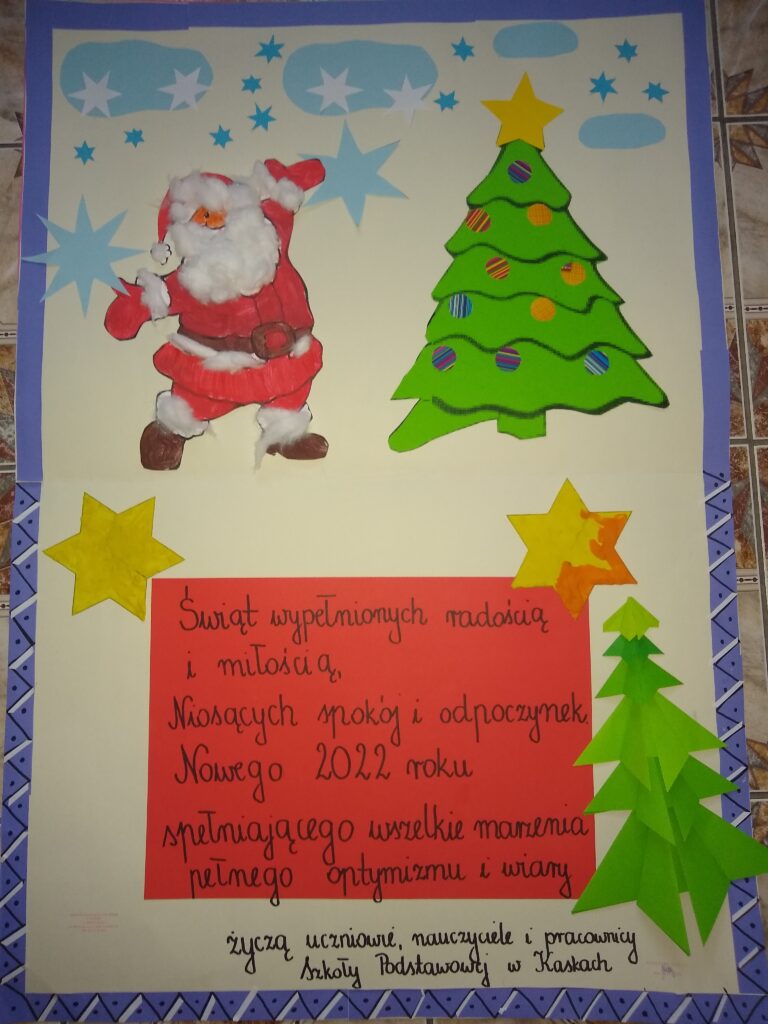 Świąt wypełnionych radością
i miłością,
Niosących spokój i odpoczynek,
Nowego 2022 roku
spełniającego wszelkie marzenia
pełnego optymizmu i wiary
życzą uczniowie, nauczyciele i pracownicy
Szkoły Podstawowej w Kaskach